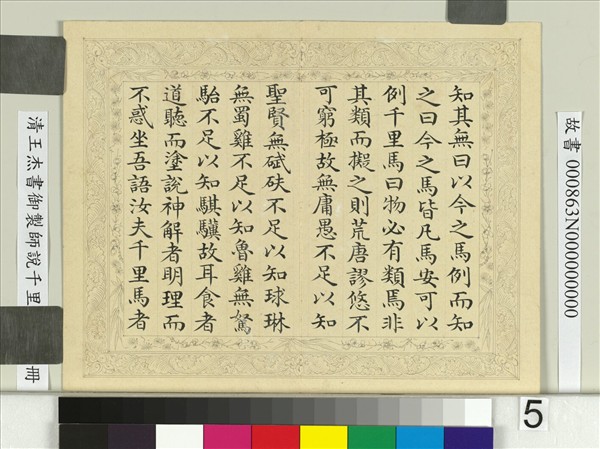 故書 000863N000000000
知其無曰以今之馬例而知
之曰今之馬皆凡馬安可以
例千里馬曰物必有類焉非
其類而擬之則荒唐謬悠不
可窮極故無庸愚不足以知
聖賢無碔砆不足以知球琳
無蜀雞不足以知魯雞無駑
駘不足以知騏驥故耳食者
道聽而塗說神解者明理而
不惑坐吾語汝夫千里馬者
清王杰書御製師說千里冊
5